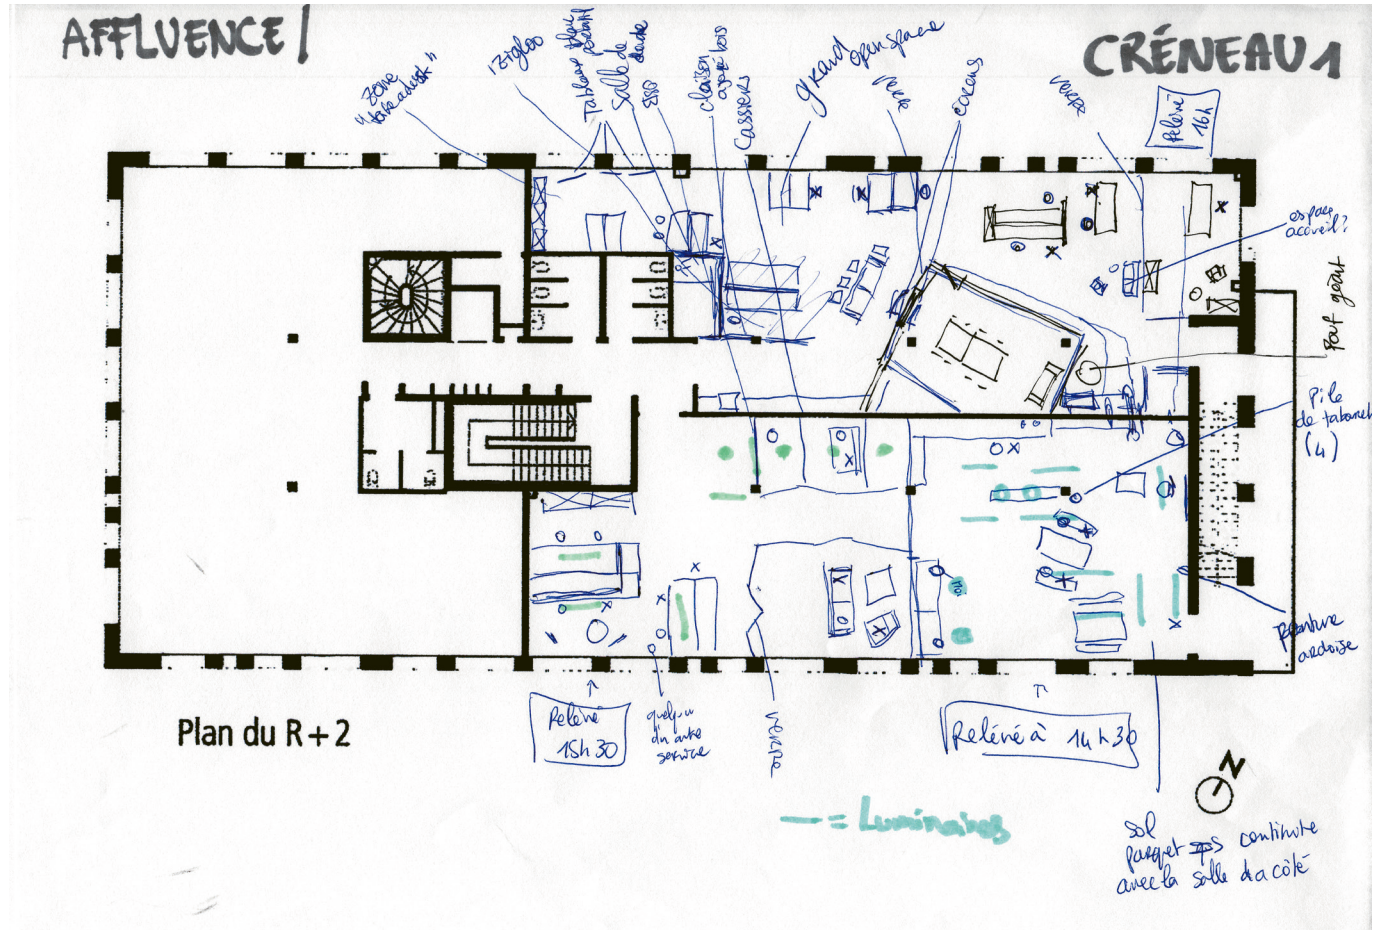 AFFLUENCE /
CRÉNEAU 1
"zone
take adust"
izigloo
Tableau
Salle de
cloison
ajouré bois
Cassiers
grand open space
verre
cocons
verre
Relevé
16h
espace
accueil?
Pouf géant
Pile
de tabouret
(4)
Peinture
ardoise
Relevé
15h30
quelqu'un
d'un autre
service
verre
Relevé à 14h30
Plan du R + 2
N
= Luminaires
sol
parquet continuité
avec la salle d'a côté